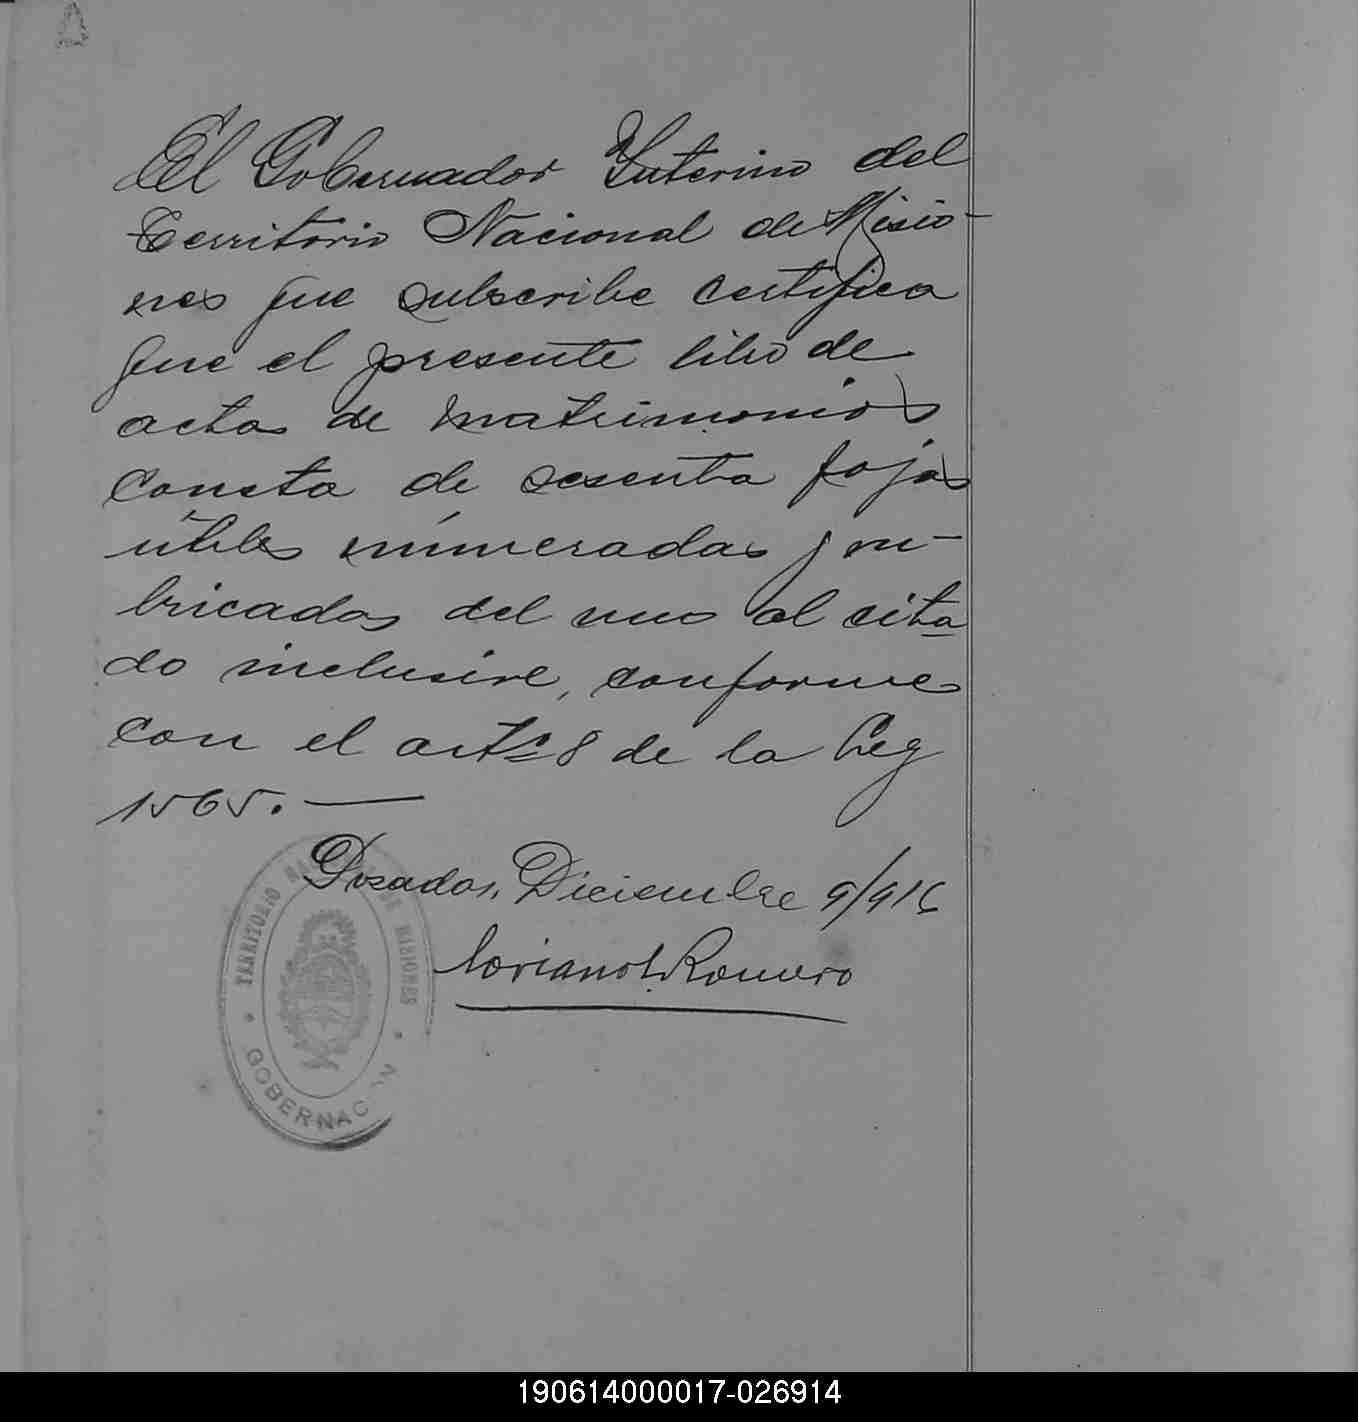 El Gobernador Interino del
Territorio Nacional de Misio-
nes que subscribe certifica
que el presente libro de
actas de matrimonios
consta de sesenta fojas
útiles númeradas y ru-
bricadas del uno al cita
do inclusive, conforme
con el artº 8 de la Ley
1565. —
Posadas, Diciembre 9/916
Romero
TERRITORIO NACIONAL DE MISIONES
GOBERNACIÓN
190614000017-026914